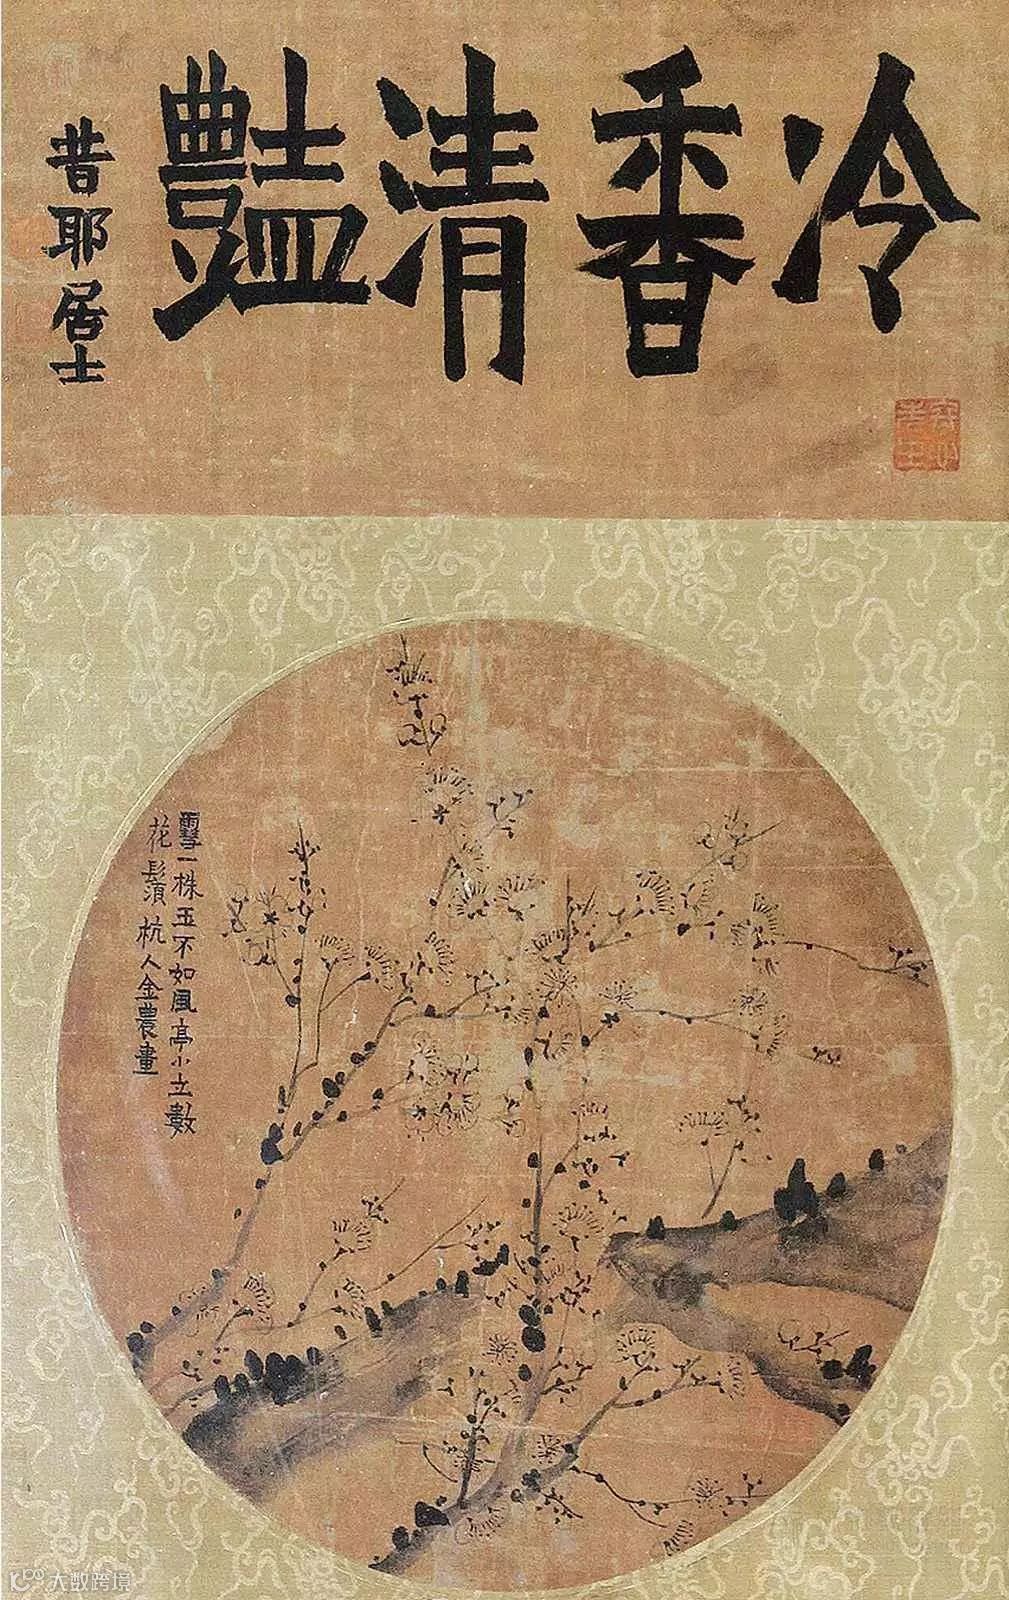 冷香清豔
昔耶居士
一株玉不如風亭小立數
花鬚杭人金農畫
大数跨境